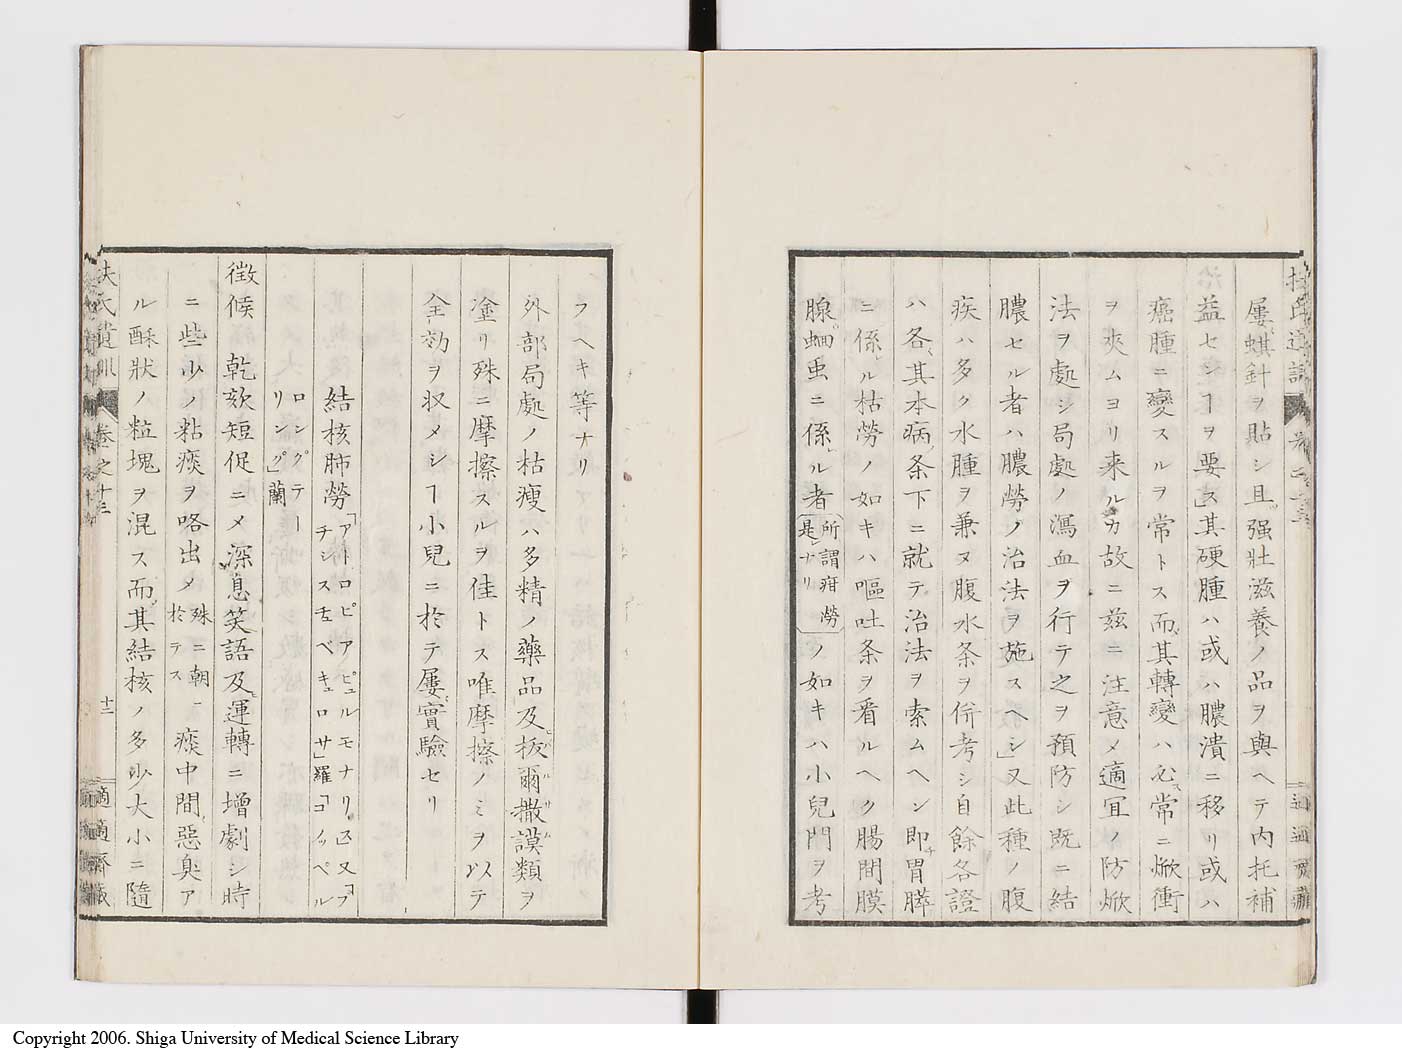 屢蜞針ヲ貼シ且強壯滋養ノ品ヲ與ヘテ内托補
益センヿヲ要ス其硬腫ハ或ハ膿潰ニ移リ或ハ
癌腫ニ變スルヲ常トス而其轉變ハ必常ニ焮衝
ヲ夾ムヨリ来ルカ故ニ茲ニ注意メ適宜ノ防焮
法ヲ處シ局處ノ瀉血ヲ行テ之ヲ預防シ既ニ結
膿セル者ハ膿勞ノ治法ヲ施スヘシ」又此種ノ腹
疾ハ多ク水腫ヲ兼ヌ腹水条ヲ併考シ自餘各證
ハ各其本病条下ニ就テ治法ヲ索ムヘシ即胃膵
ニ係ル枯勞ノ如キハ嘔吐条ヲ看ルヘク腸間膜
腺蛔虫ニ係ル者所謂疳勞是ナリノ如キハ小兒門ヲ考
フヘキ等ナリ
外部局處ノ枯瘦ハ多精ノ藥品及抜爾撒謨類ヲ
塗リ殊ニ摩擦スルヲ佳トス唯摩擦ノミヲ以テ
全効ヲ収メシヿ小兒ニ於テ屢實驗セリ
結核肺勞「アトロピアピュルモナリス」又「フチシスチュベキュロサ」羅「コノッペルロングテーリング」蘭
徴候 乾欬短促ニメ深息笑語及運轉ニ增劇シ時
ニ些少ノ粘痰ヲ咯出メ殊ニ朝ニ於テス痰中間惡臭ア
ル酥狀ノ粒塊ヲ混ス而其結核ノ多少大小ニ隨
扶氏遺訓 卷之十三 十二 適適齋藏